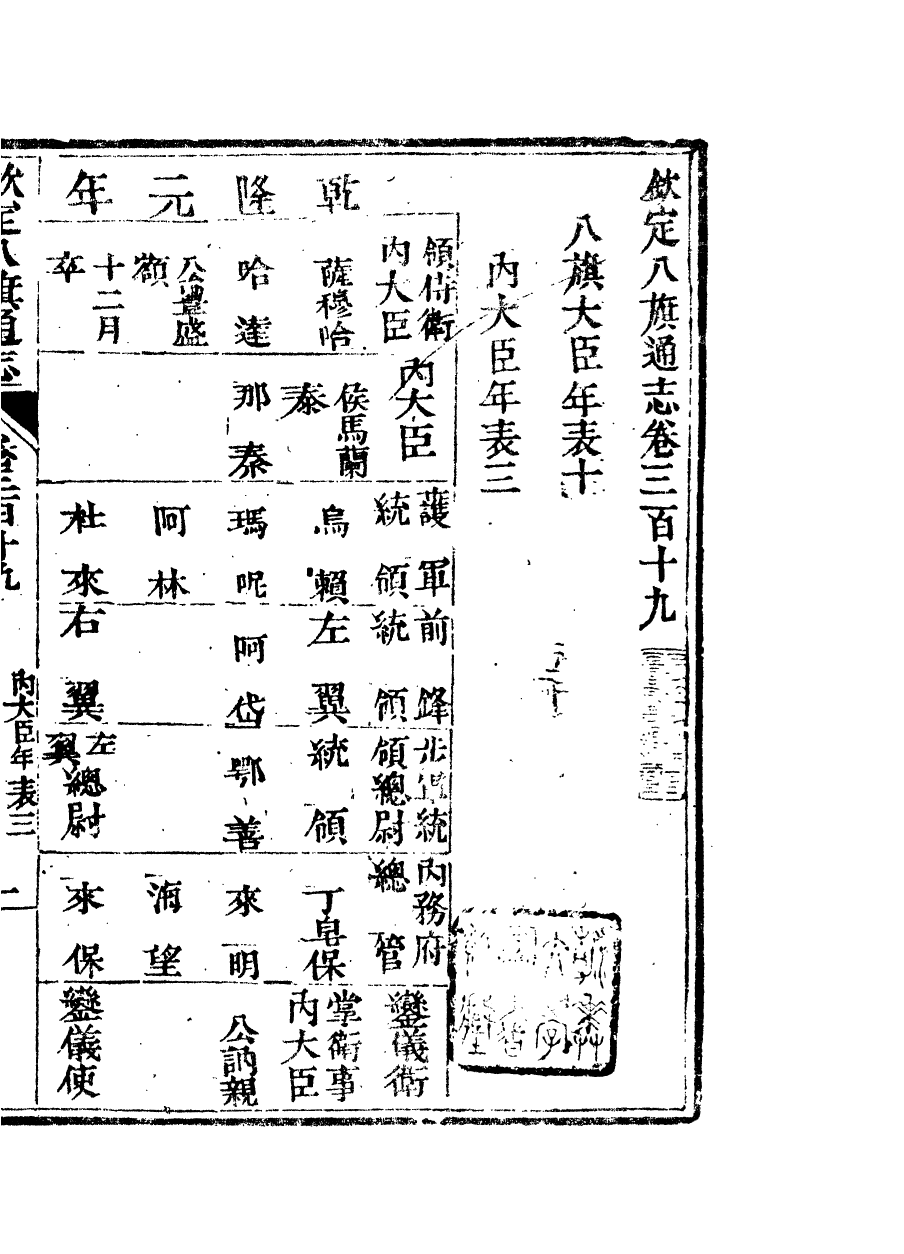 欽定八旗通志卷三百十九
八旗大臣年表十
内大臣年表三
乾隆元年
領侍衛
内大臣
薩穆哈
哈達
公豐盛
額
十二月
卒
内大臣
侯馬蘭
泰
那泰
護軍
統領
烏賴
瑪呢
阿林
杜來
前鋒
統領
左翼
阿岱
右翼
步軍統
領總尉
統領
鄂善
左翼總尉
内務府
總管
丁皂保
來明
海望
來保
鑾儀衛
掌衛事
内大臣
公訥親
鑾儀使
欽定八旗通志
卷三百十九
内大臣年表三
一